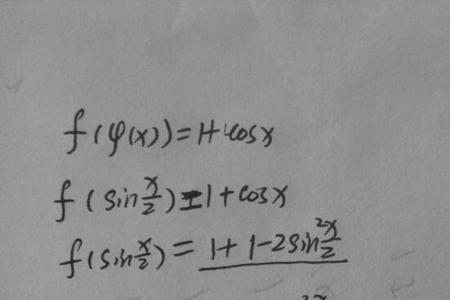 f(φ(x))=1+cosx
f(sin x/2)=1+cosx
f(sin x/2)=1+1-2sin²x/2